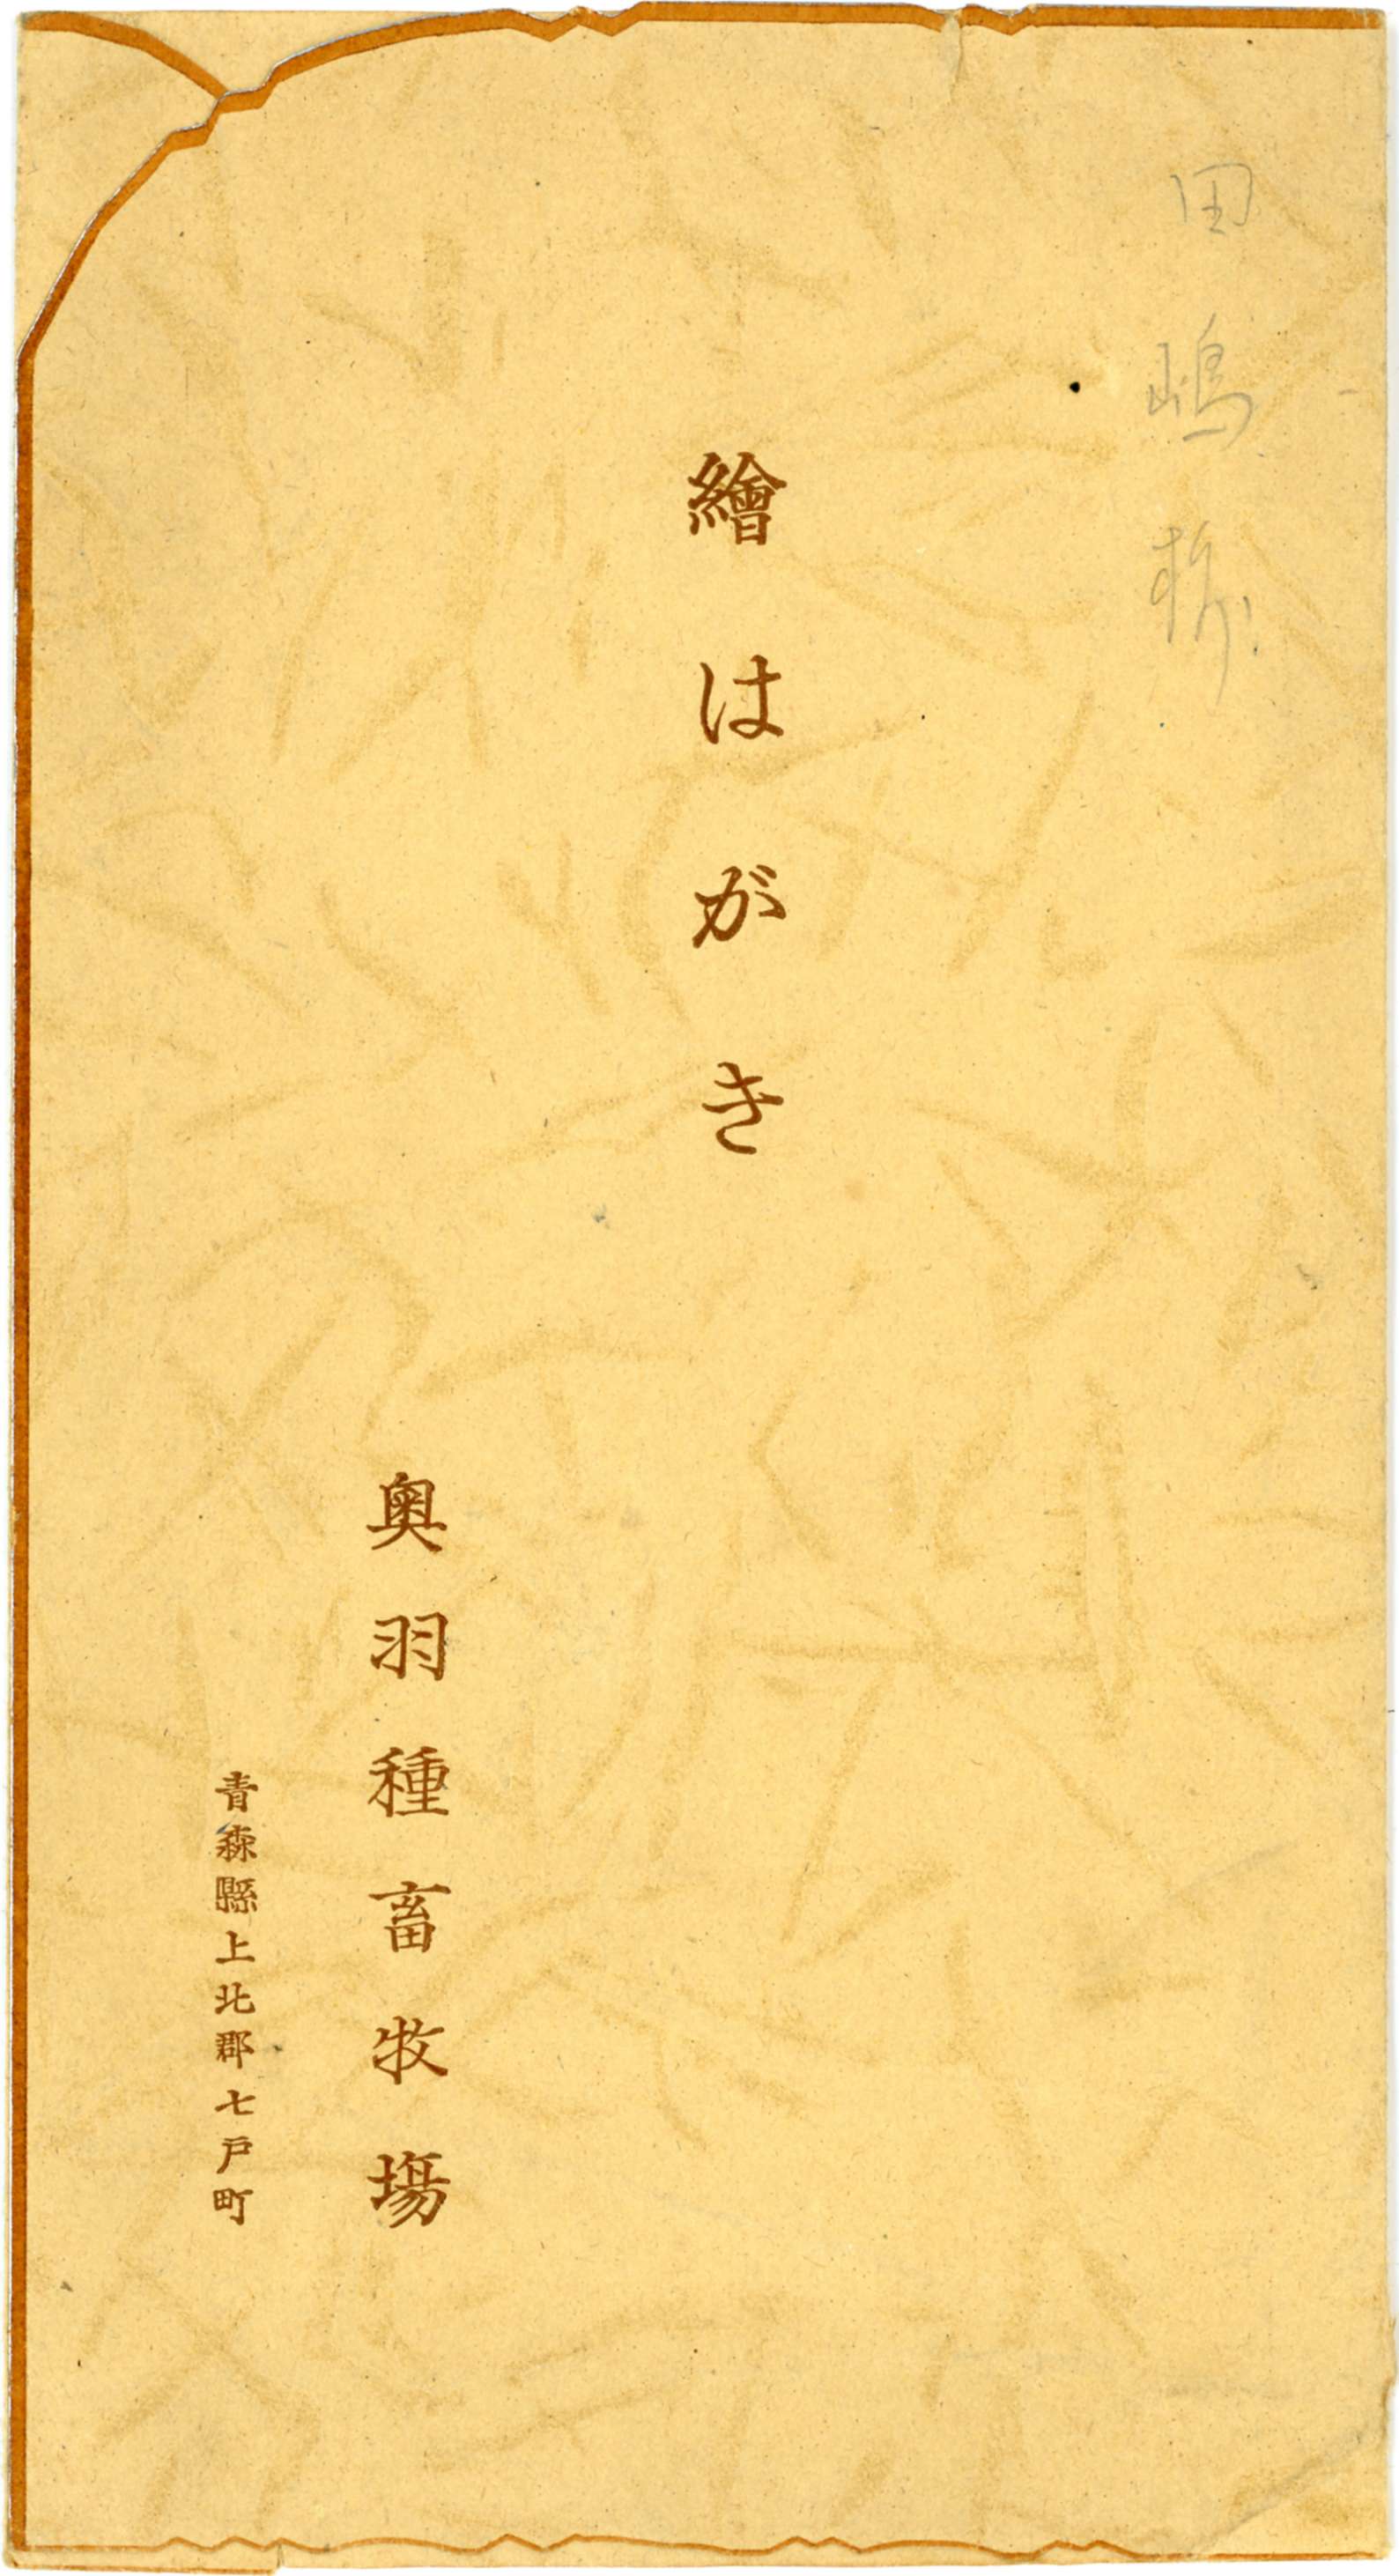 田嶋様
繪はがき
奥羽種畜牧場
青森縣上北郡七戸町